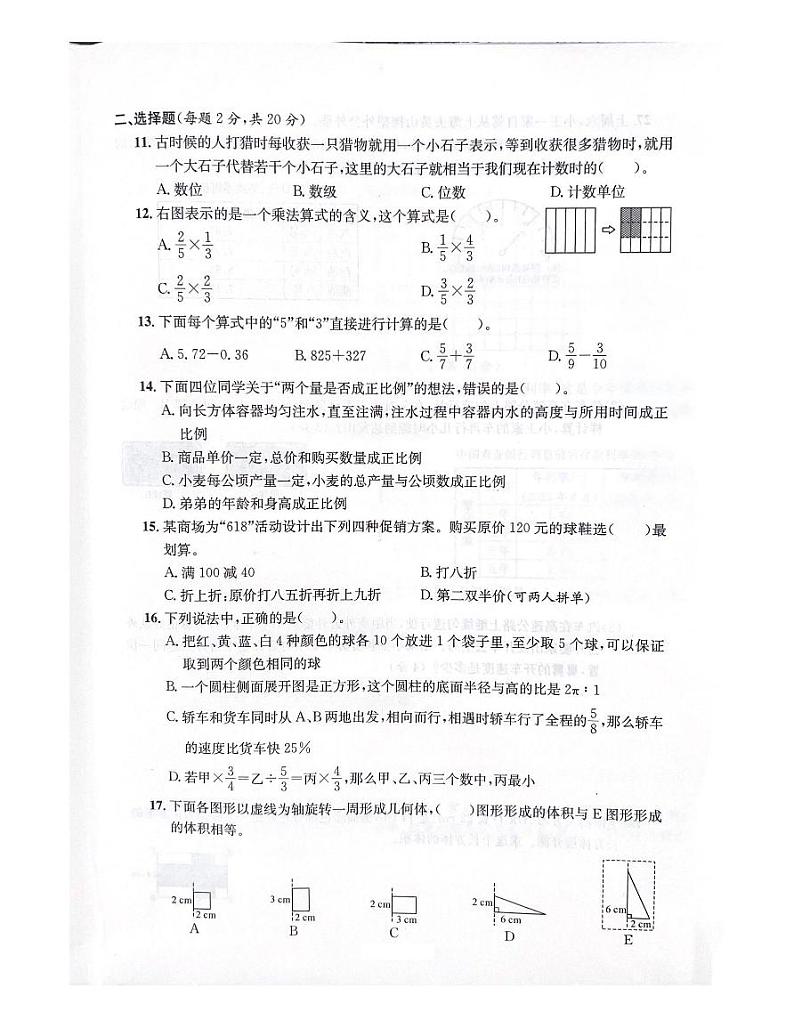 二、选择题(每题2分,共20分)
11. 古时候的人打猎时每收获一只猎物就用一个小石子表示,等到收获很多猎物时,就用
一个大石子代替若干个小石子,这里的大石子就相当于我们现在计数时的(  )。
A. 数位 B. 数级 C. 位数 D. 计数单位
12. 右图表示的是一个乘法算式的含义,这个算式是(  )。
A. 2/5×1/3 B. 1/5×4/3
C. 2/5×2/3 D. 3/5×2/3
13. 下面每个算式中的“5”和“3”直接进行计算的是(  )。
A. 5.72-0.36 B. 825+327 C. 5/7+3/7 D. 5/9-3/10
14. 下面四位同学关于“两个量是否成正比例”的想法,错误的是(  )。
A. 向长方体容器均匀注水,直至注满,注水过程中容器内水的高度与所用时间成正
比例
B. 商品单价一定,总价和购买数量成正比例
C. 小麦每公顷产量一定,小麦的总产量与公顷数成正比例
D. 弟弟的年龄和身高成正比例
15. 某商场为“618”活动设计出下列四种促销方案。购买原价120元的球鞋选(  )最
划算。
A. 满100减40 B. 打八折
C. 折上折:原价打八五折再折上九折 D. 第二双半价(可两人拼单)
16. 下列说法中,正确的是(  )。
A. 把红、黄、蓝、白4种颜色的球各10个放进1个袋子里,至少取5个球,可以保证
取到两个颜色相同的球
B. 一个圆柱侧面展开图是正方形,这个圆柱的底面半径与高的比是2π∶1
C. 轿车和货车同时从A、B两地出发,相向而行,相遇时轿车行了全程的5/8,那么轿车
的速度比货车快25%
D. 若甲×3/4=乙÷5/3=丙×4/3,那么甲、乙、丙三个数中,丙最小
17. 下面各图形以虚线为轴旋转一周形成几何体,(  )图形形成的体积与E图形形成
的体积相等。
2 cm 2 cm A
3 cm 2 cm B
2 cm 3 cm C
2 cm 6 cm D
6 cm 2 cm E